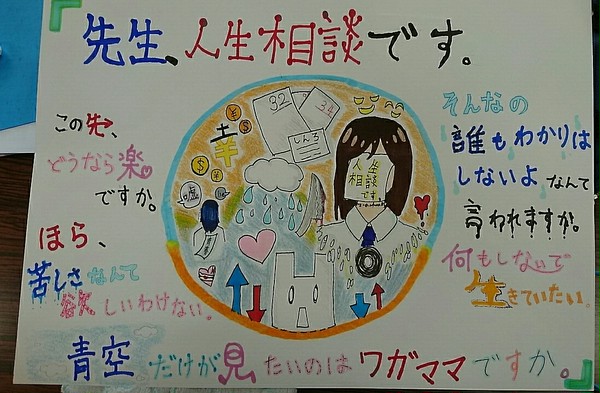 先生、人生相談です。
この先、
どうなら楽
ですか。
ほら、
苦しさなんて
欲しいわけない。
32
34
しんろ
人生
相談
です
嘘
そんなの
誰もわかりは
しないよなんて
言われますか。
何もしないで
生きていたい。
青空だけが見たいのはワガママですか。